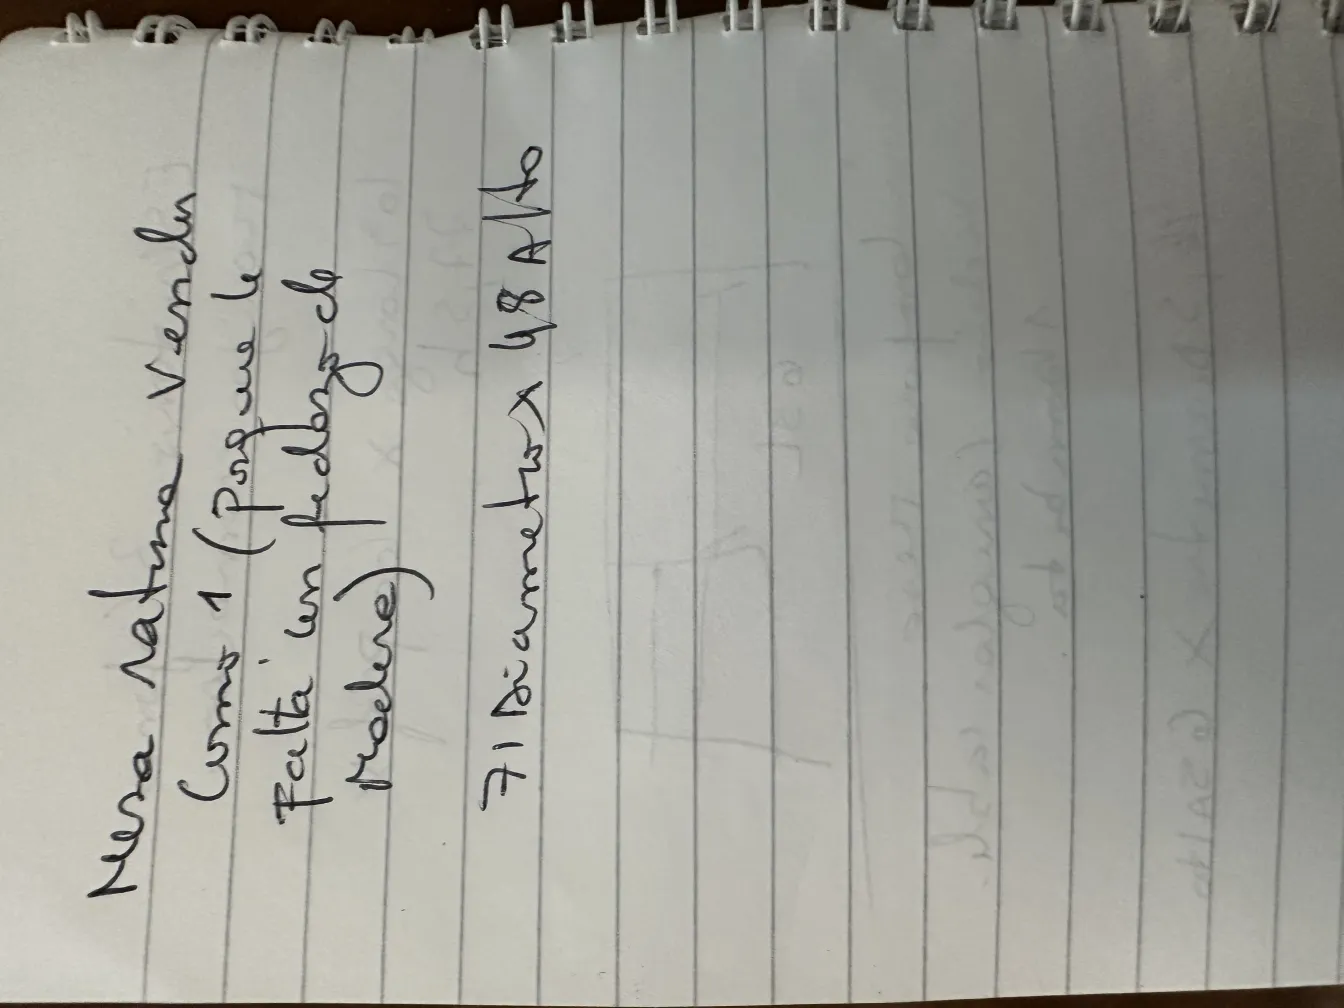 Mesa Natima Vender
Como 1 (Porque le
Falta un pedazo de
Madera)
71 Diametro x 48 Alto